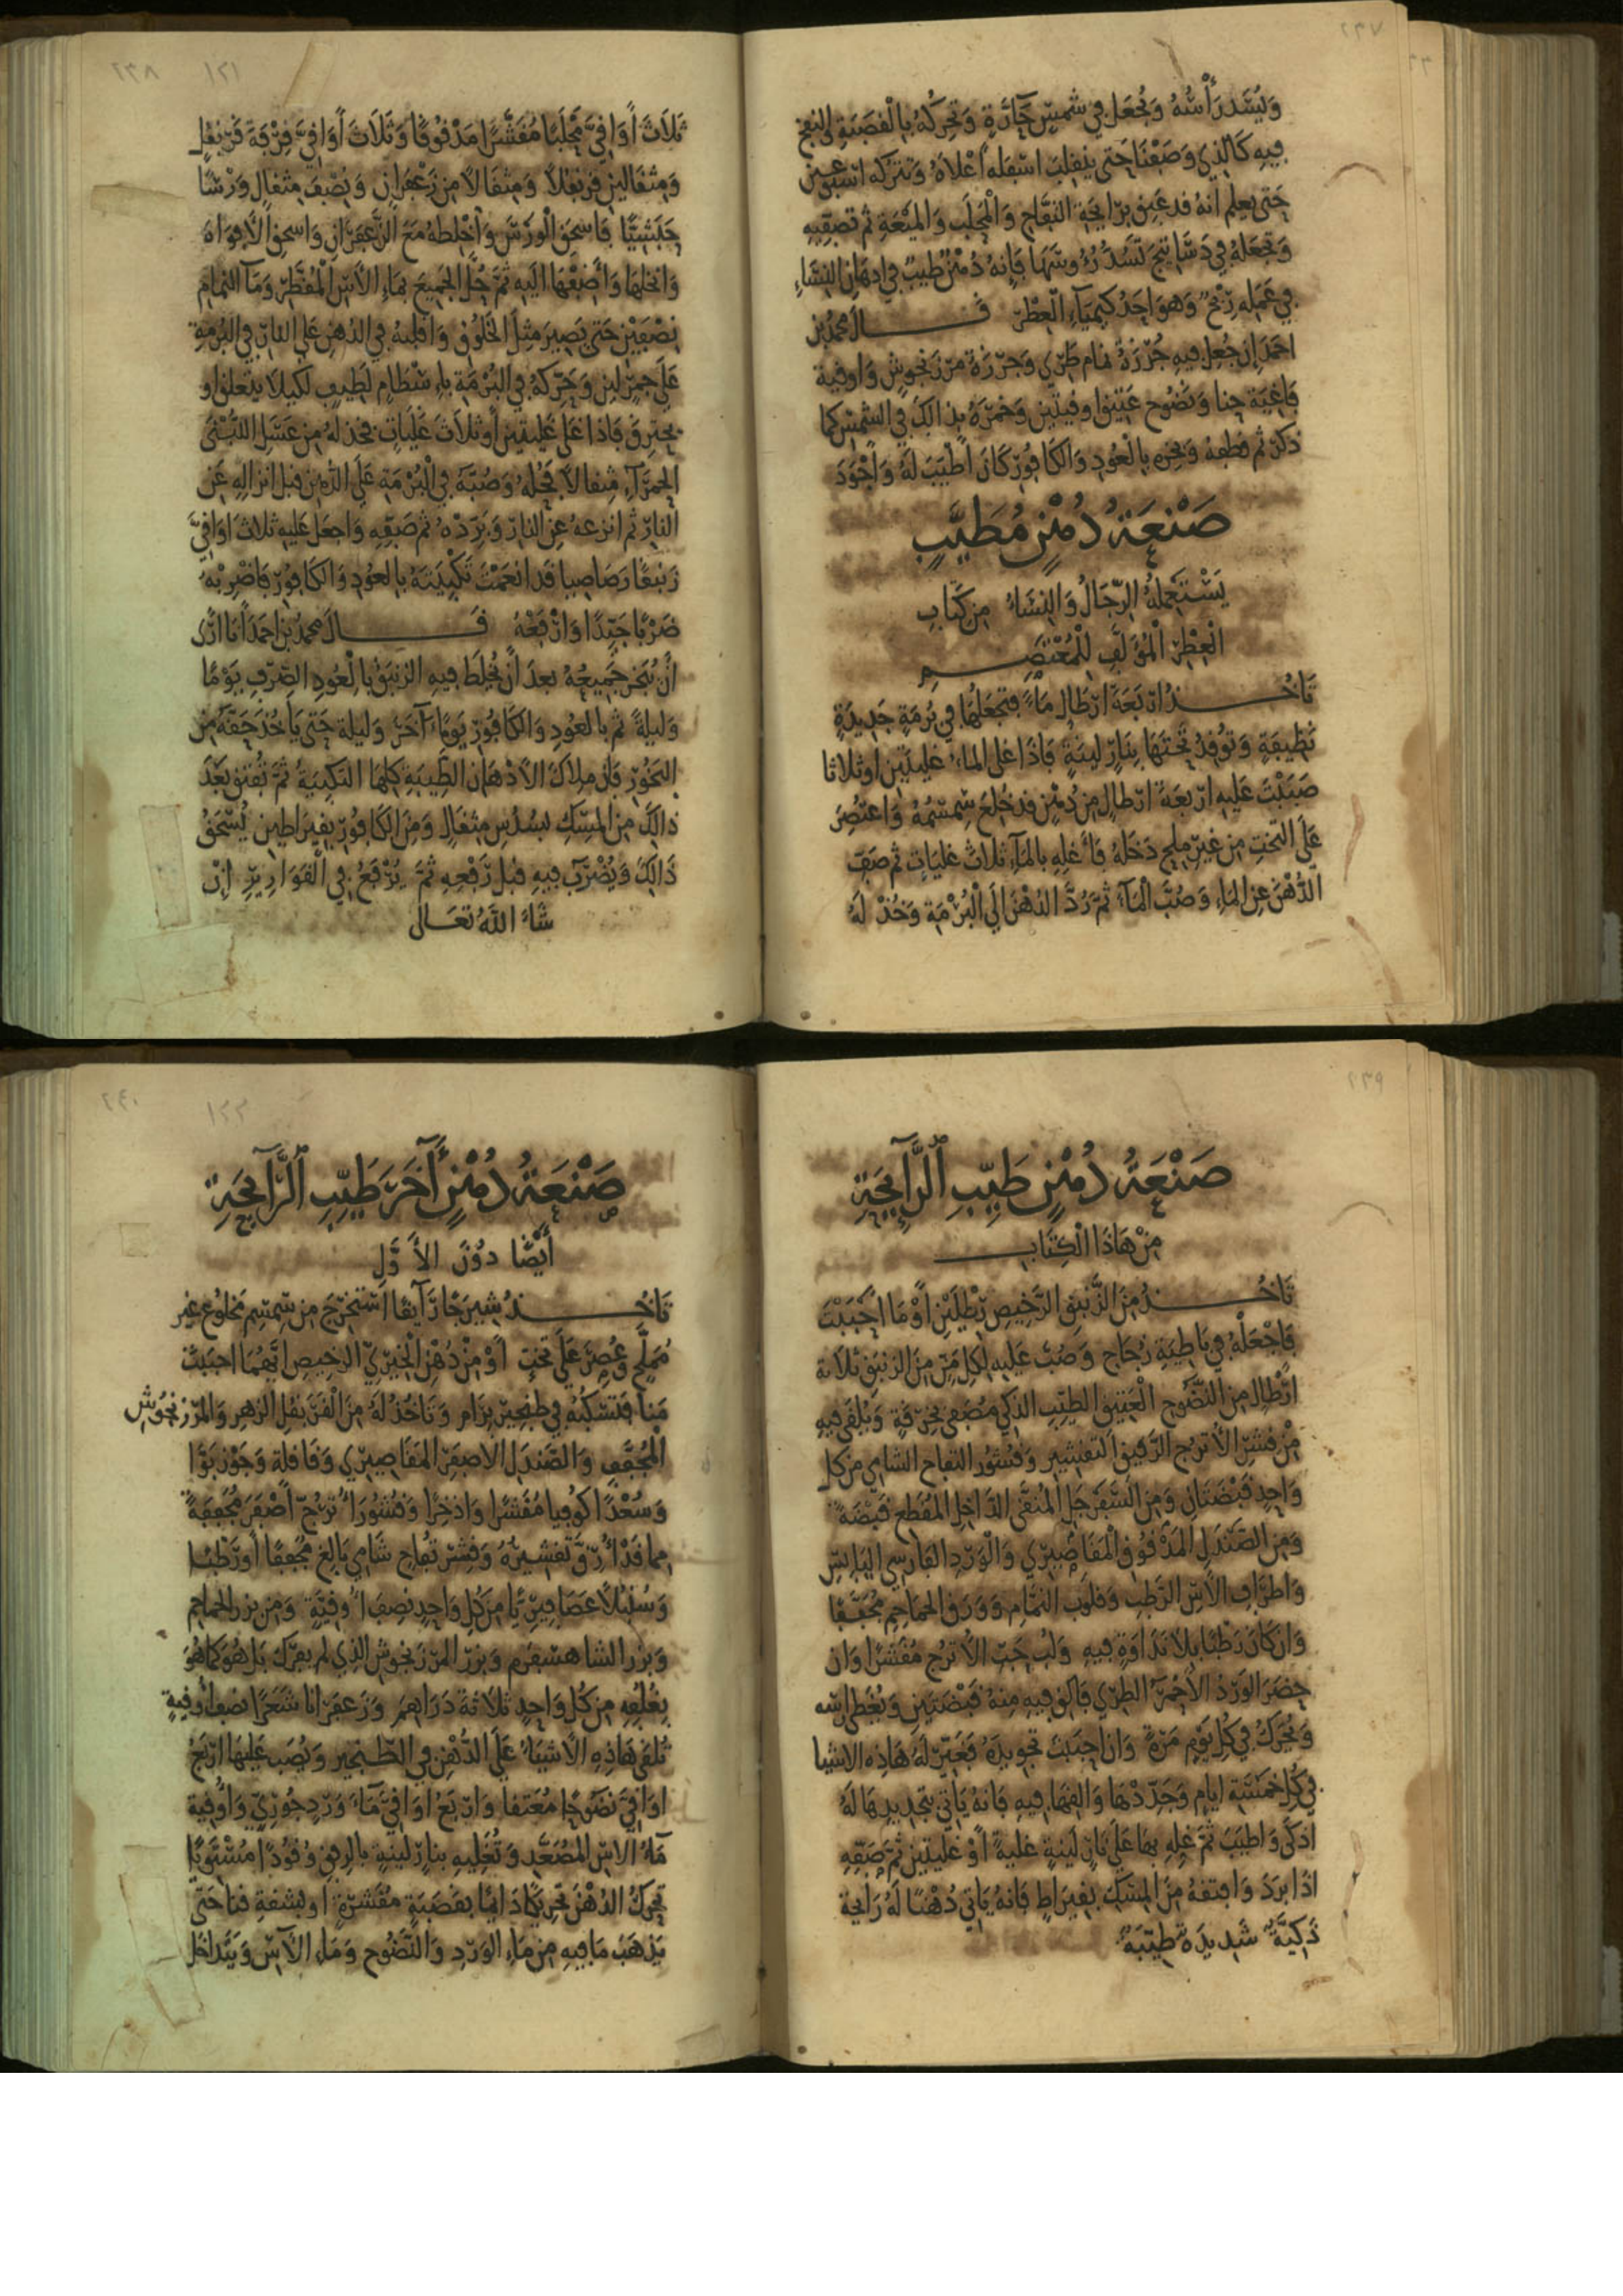 ٢٣٧
وَلْيُشَد رَأْسُهُ وَتُجْعَل فِي شَمْسٍ حَارَّةٍ وَتُحَرِّكُهُ بِالْقَصَبَةِ
فِيهِ كَالَّذِي وَصَفْنَا حَتَّى يَنْقَلِبَ اسْفَلهُ أَعْلَاهُ وَتَتْرُكهُ
حَتَّى يعلم أنهُ قد عَبِقَ بِرَائِحَةِ التُّفَّاحِ وَالْمَحْلَبِ وَالْمَيْعَةِ ثُم تُصَفِّيهِ
وَتَجْعَلهُ فِي دَسَاتِيجَ تَسُدُّ رُءُوسَهَا فَإنهُ دُهْنٌ طَيِّبٌ فِي ادهَانِ النِّسَاءِ
فِي عَمَلِهِ رِبْحٌ وَهوَ احَدُ كِيمِيَاءِ الْعِطْرِ قَــــالَ مُحمدُ بن
احمَدَ إن جُعِلَ فِيهِ جُرْزَةُ نمام طَرِي وَجرْزَةُ مَرْزَنْجُوشٍ وَاوقية
فَاغِيَة حِنا وَنَضُوح عَتِيق اوقِيتَين وَخَمَّرَهُ بِذَالِكَ فِي الشَّمْسِ كَمَا
ذكَرَ ثم قطعهُ وَبخره بِالْعُودِ وَالكَافُورِ كَانَ أَطْيَبَ لَهُ وَأَجْوَدَ
صَنْعَةُ دُهْنٍ مُطَيَّبٍ
يَسْتَعْمِلُهُ الرِّجَالُ وَالنِّسَاءُ مِن كِتَابِ
الْعِطْرِ الْمُؤَلَّفِ لِلْمُعْتَصِمِ
تَاخُـــذُ ارْبَعَةَ ارْطَالِ مَاءٍ فَتَجْعَلُهَا فِي بُرْمَةٍ جَدِيدَةٍ
نَظِيفَةٍ وَتُوقِدُ تَحْتَهَا بِنَارٍ لينَةٍ فَإذَا غلى الماءُ غليتَين اوثلاثا
صَبَبْتَ عَلَيهِ ارْبعَةَ ارْطالٍ مِن دُهْنٍ قد خُلِعَ سِمْسِمُهُ وَاعْتُصِرَ
عَلَى التَّخْتِ مِن غَيْرِ مِلحٍ دَخَلَهُ فَأغلِهِ بالمَاءِ ثلاثَ غليَاتٍ ثم صَفِّ
الدُّهْنَ عَنِ المَاءِ وَصُبَّ الْمَاءَ ثُمَّ رُدَّ الدُّهْنَ الَى الْبُرْمَةِ وَخُذْ لَهُ
٢٣٨ ١٢١
ثَلَاثَ أَوَاقِيَّ مَحْلَبًا مُقَشَّرًا مَدْقُوقًا وَثَلَاثَ أَوَاقِيَّ قِرْفَةَ قَرَنْفُلٍ
وَمِثقَالَينِ قَرَنفُلًا وَمِثقَالًا مِن زَعْفَرَانٍ وَنِصْفَ مِثقَالٍ وَرْسًا
حَبَشِيًّا فَاسْحَقِ الْوَرْسَ وَاخْلِطهُ مَعَ الزَّعْفَرَانِ وَاسْحَقِ الأَفْوَاهَ
وَانخلهَا وَأضِفْهَا الَيهِ ثُمَّ حُلَّ الجَمِيعَ بِمَاءِ الأَسِ الْمُقَطَّرِ وَمَاءِ النمامِ
نِصْفَيْنِ حَتى يَصِيرَ مِثلَ الْخَلُوقِ وَاقْلبهُ فِي الدُّهنِ عَلى النارِ فِي البُرْمَةِ
عَلَى جَمْرٍ لينٍ وَحَرِّكهُ فِي الْبُرْمَةِ بِاسْطَامٍ لَطِيفٍ لكَيلَا يتعلق او
يحترِقَ فَاذَا غلى غليَتَين أَوثلَاثَ غلَيَاتٍ فخذ لهُ مِن عَسَلِ اللُّبْنَى
الحمرَاءِ مِثقالًا فحُلَّهُ وَصُبَّهُ فِي الْبُرْمَةِ عَلَى الدُّهنِ قبل انزَالِهِ عَنِ
النارِ ثم انزعهُ عنِ النارِ وَبَرِّدْهُ ثم صَفِّهِ وَاجعَل عَليهِ ثلاثَ أوَاقِيَّ
زَنبَقًا رَصَاصِيا قَد انعَمْتَ تَكْبِيَتَهُ بالعُودِ وَالكَافُورِ فَاضْرِبْهُ
ضَرْبًا جَيّدًا وَارْفَعْهُ قَــــالَ مُحمدُ بْنُ احْمَدَ أَنَا أَرَى
أَنْ يُبَخّرَ جَمِيعُهُ بعدَ أَنْ يُخلَطَ فِيهِ الزَنبَقُ بِالْعُودِ الصِّرْفِ يَوْمًا
وَليلَةً ثم بالعُودِ وَالكَافُورِ يَومًا آخَرَ وَليلةً حَتى يَاخُذَ حَقَّهُ مِنَ
البَخُورِ فَإن مِلاكَ الأَدْهَانِ الطَّيبَةِ كُلّهَا التَّكبِيَةُ ثُمَّ تُفْتَقُ بَعْدَ
ذالِكَ مِنَ المِسْكِ بسُدُسِ مِثقَالٍ وَمِنَ الكَافُورِ بِقِيرَاطِينِ يُسْحَقُ
ذَالِكَ وَيُضْرَبُ فِيهِ قبْلَ رَفْعِهِ ثُمَّ يُرْفَعُ فِي الْقَوَارِيرِ إِنْ
شَاءَ اللَّهُ تَعَالَى
٢٣٩
صَنْعَةُ دُهْنٍ طَيِّبِ الرَّائِحَةِ
مِنْ هَاذَا الْكِتَابِ
تَاخُـــذُ مِنَ الزَّنْبَقِ الرَّخِيصِ رِطْلَيْنِ أَوْ مَا أَحْبَبْتَ
فَاجْعَلْهُ فِي بَاطِيَةِ زُجَاجٍ وَصُبَّ عَليهِ لِكلِ مَنٍّ مِنَ الزَنبَقِ ثَلَاثة
ارْطَالٍ مِن النَّضُوحِ الْعَتِيقِ الطيِّبِ الذَّكِيّ مُصَفى بِخِرْقةٍ وَيُلقَى فِيهِ
مِن قِشرِ الأُترُجِ الرَّقِيقِ التَّقشِيرِ وَقُشُورِ التفاحِ الشامِي مِن كلِّ
وَاحِدٍ قَبْضَتَانِ وَمِنَ السَّفَرْجَلِ الْمُنَقَّى الدَّاخِلِ المُقَطَّعِ قَبْضَةً
وَمِنَ الصَّنْدَلِ المَدْقُوقِ الْمَقَاصِيرِي وَالْوَرْدِ الفَارِسِي اليَابِسِ
وَاطرَافِ الأَسِ الرَّطْبِ وَقلُوبِ النَّمَّامِ وَوَرَقِ الْحَمَاحِمِ مُجَفَّفًا
وَان كَانَ رَطْبًا بِلَا نَدَاوَةٍ فِيهِ وَلُبِّ حَبِّ الأُترُجِ مُقَشَّرًا وَان
حَضَرَ الوَرْدُ الأَحْمَرُ الطرِي فَالقِ فِيهِ مِنهُ قَبْضَتَينِ وَيُغَطى رأسه
وَيُحَرَّكُ فِي كُلِّ يَومٍ مَرَّةً وَان احْبَبْتَ تجويدَهُ فَغَيِّرْ لَهُ هَاذِهِ الاشيا
فِي كُلِّ خَمسَةِ ايامٍ وَجَدِّدْهَا وَالقِهَا فِيهِ فَانهُ يَاتِي بِتجدِيدِهَا لَهُ
اذكَى وَاطيَبَ ثمَّ غلِهِ بهَا عَلَى نَارٍ لَينَةٍ غليَةً أَوْ غليَتَينِ ثُمَّ صَفِّهِ
اذَا بَرَدَ وَافتقهُ مِنَ المِسْكِ بِقِيرَاطٍ فَانهُ يَاتِي دُهْنًا لَهُ رَائِحَة
ذَكِيَّةٌ شَدِيدَةٌ طَيّبَةٌ
٢٤٠ ١٢٢
صَنْعَةُ دُهْنٍ آخَرَ طَيِّبِ الرَّائِحَةِ
أَيْضًا دُونَ الأَوَّلِ
تَاخُـــذُ شِيرَجًا رَائِقًا اسْتُخْرِجَ مِن سِمْسِمٍ مَخلُوعٍ غير
مُمَلَّحٍ وَعُصِرَ عَلَى تَخْتٍ أَوْ مِنْ دُهْنِ الْخِيرِيّ الرخِيصِ ايَّهُمَا احبَبتَ
مَنا فَتَسْكُبُهُ فِي طِنْجِيرِ بِرَامٍ وَتَاخُذُ لَهُ مِنَ الْقَرَنفُلِ الزهرِ وَالمَرْزنجوش
الْمُجَفَّفِ وَالصَّندَلِ الاصفَرِ المَقَاصِيرِي وَقَاقُلة وَجَوْزبَوَّا
وَسُعْدًا كُوفِيا مُقَشَّرًا وَاذخِرًا وَقُشُورَ أُتْرُجّ أَصْفَرَ مُجَفَفَةً
مما قَدْ أُرِقَّ تَقْشِيرُهُ وَقِشر تفَاحٍ شَامِي بَالغٍ مُجَففًا أَورَطْبًا
وَسُنبُلًا عَصَافِيرِيًّا مِن كُلِ وَاحِدٍ نصِفَ أُوقِيَّةٍ وَمِن بزر الحماحِمِ
وَبَزْرِ الشاهسفرم وَبزرِ المرْزنجوش الذِي لم يفرَك بَل هُوَ كَمَا هُوَ
بِغُلفِهِ مِن كُلِّ وَاحِدٍ ثلَاثةَ دَرَاهِمَ وَزَعفَرَانا شَعَرًا نصفَ اوقية
تُلقَى هَاذِهِ الأَشيَاءُ عَلَى الدُّهْنِ فِي الطنجِير وَيُصَب عَليهَا ارْبَعُ
اوَاقِيَّ نَضُوحًا مُعَتقا وَارْبَعُ اوَاقِيَّ مَاءَ وَرْدٍ جُورِيّ وَاوقِية
مَاءُ الاسِ المُصَعَّدِ وَتُغلِيهِ بنارٍ لينَةٍ بالرِّفقِ وُقُودًا مُسْتَوِيًا
تُحَرِّكُ الدُّهنَ تحرِيكًا دَائمًا بِقَصَبَةٍ مُقَشَّرَةٍ أوبشقةِ قنا حَتَّى
يَذهَبَ مَا فِيهِ مِن مَاءِ الوَرْدِ وَالنَّضُوحِ وَمَاءِ الأَسِ وَيَتَدَاخَل